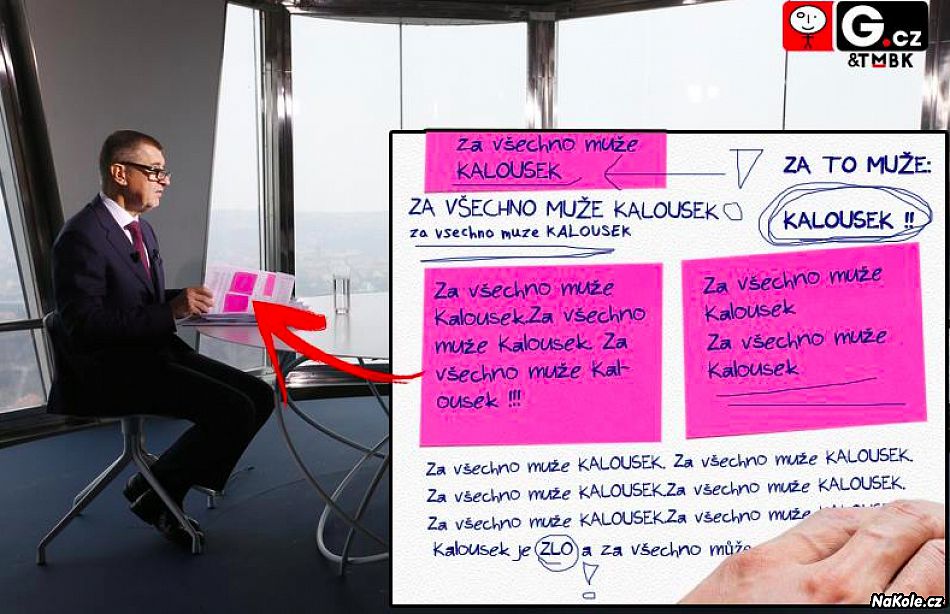 G.cz
&TMBK
Za všechno muže
KALOUSEK
ZA TO MUŽE:
KALOUSEK !!
ZA VŠECHNO MUŽE KALOUSEK
za vsechno muze KALOUSEK
Za všechno muže
Kalousek.Za všechno
muže Kalousek. Za
všechno muže Kal-
ousek !!!
Za všechno muže
Kalousek
Za všechno muže
Kalousek
Za všechno muže KALOUSEK. Za všechno muže KALOUSEK.
Za všechno muže KALOUSEK.Za všechno muže KALOUSEK.
Za všechno muže KALOUSEK.Za všechno muže
Kalousek je ZLO a za všechno může
!
NaKole.cz